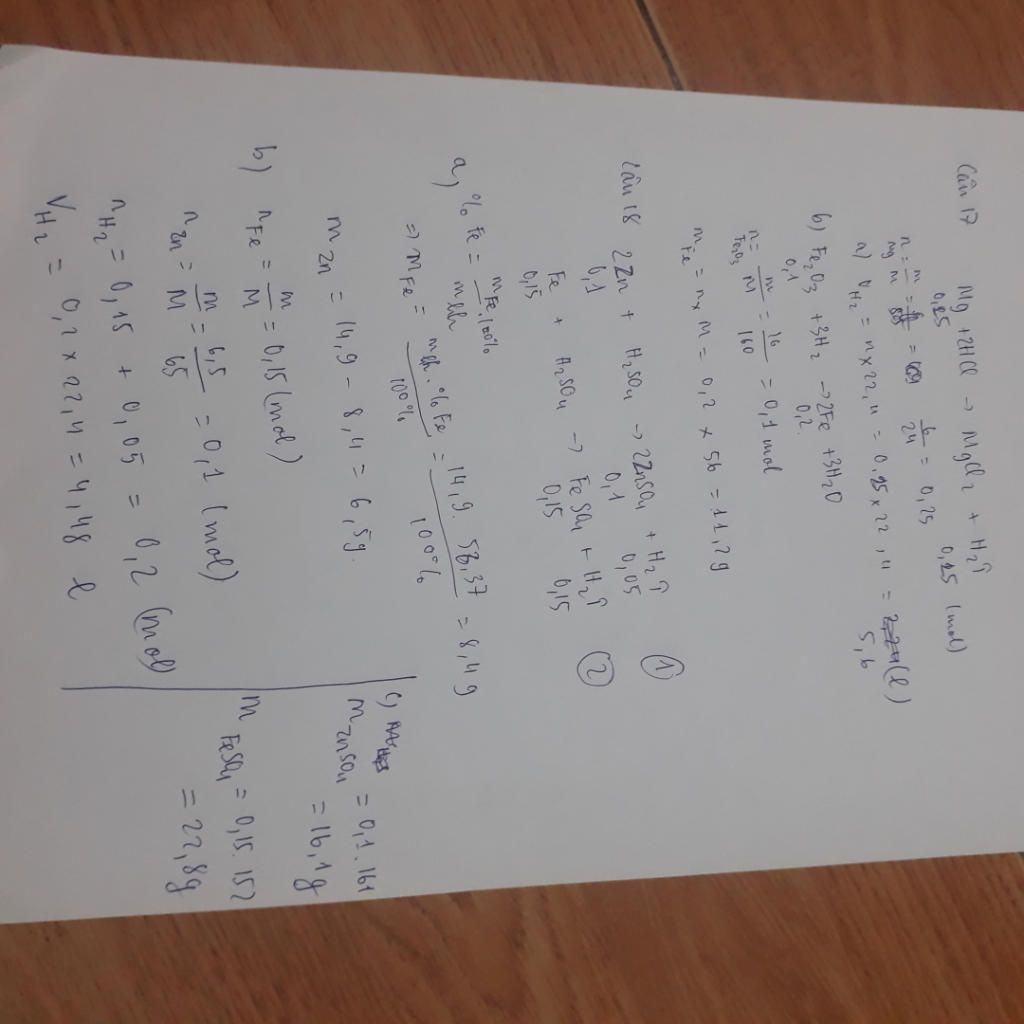 Câu 17 Mg + 2HCl → MgCl2 + H2↑
0,25 0,25 (mol)
n Mg = m/M = 6/24 = 0,25
a) VH2 = n x 22,4 = 0,25 x 22,4 = 5,6 (l)
b) Fe2O3 + 3H2 → 2Fe + 3H2O
0,1 0,2
n Fe2O3 = m/M = 16/160 = 0,1 mol
mFe = n x M = 0,2 x 56 = 11,2g
Câu 18 2Zn + H2SO4 → 2ZnSO4 + H2↑ (1)
0,1 0,1 0,05
Fe + H2SO4 → FeSO4 + H2↑ (2)
0,15 0,15 0,15
a) % Fe = mFe.100% / mhh
=> mFe = mhh.%Fe / 100% = 14,9.56,37 / 100% = 8,4g
mZn = 14,9 - 8,4 = 6,5g.
b) nFe = m/M = 0,15 (mol)
nZn = m/M = 6,5/65 = 0,1 (mol)
nH2 = 0,15 + 0,05 = 0,2 (mol)
VH2 = 0,2 x 22,4 = 4,48 l
c)
mZnSO4 = 0,1.161
= 16,1g
mFeSO4 = 0,15.152
= 22,8g